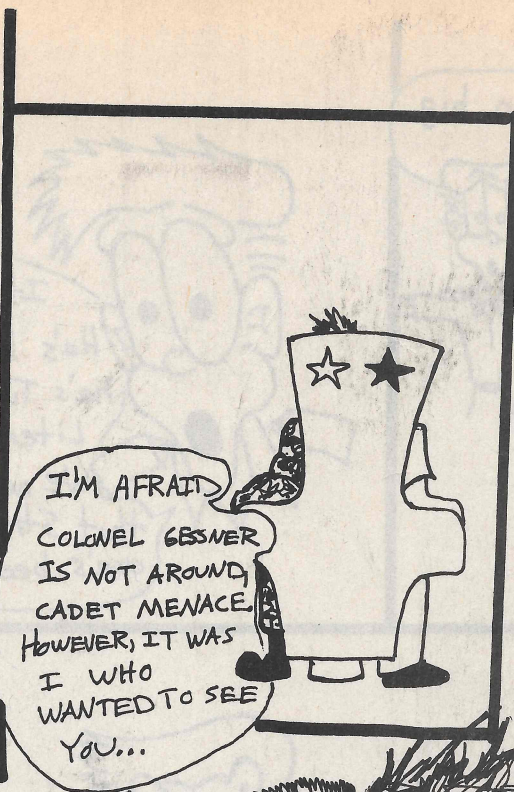 I'M AFRAID
COLONEL GESSNER
IS NOT AROUND,
CADET MENACE.
HOWEVER, IT WAS
I WHO
WANTED TO SEE
YOU...